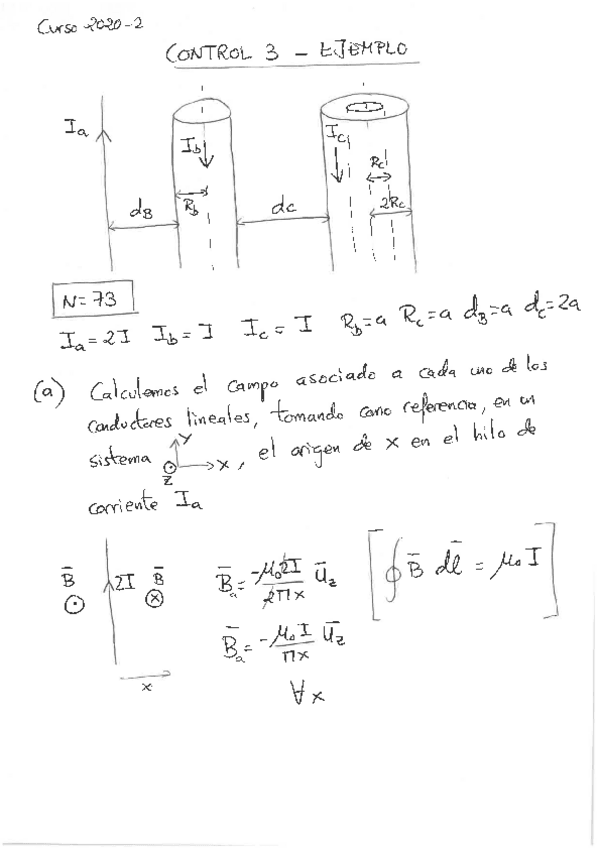 Curso 2020-2
CONTROL 3 - EJEMPLO
Ia
Ib
Ic
Rc
dB
Rb
dc
2Rc
N=73
Ia = 2I Ib = I Ic = I Rb=a Rc=a dB=a dc=2a
(a) Calculemos el campo asociado a cada uno de los
conductores lineales, tomando como referencia, en un
sistema Y X Z, el origen de x en el hilo de
corriente Ia
B̄ 2I B̄ B̄a = -μ₀2I/2πx ūz [∮ B̄ dl̄ = μ₀ I]
B̄a = -μ₀ I/πx ūz
x
∀x